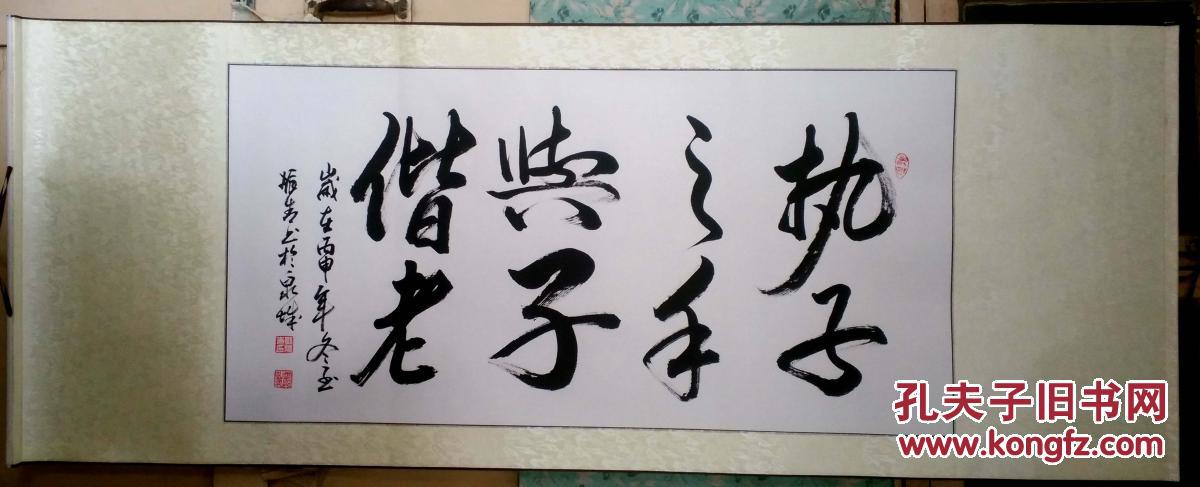 执子
之手
與子
偕老
歲在丙申年冬至
振青书於泉城
孔夫子旧书网
www.kongfz.com